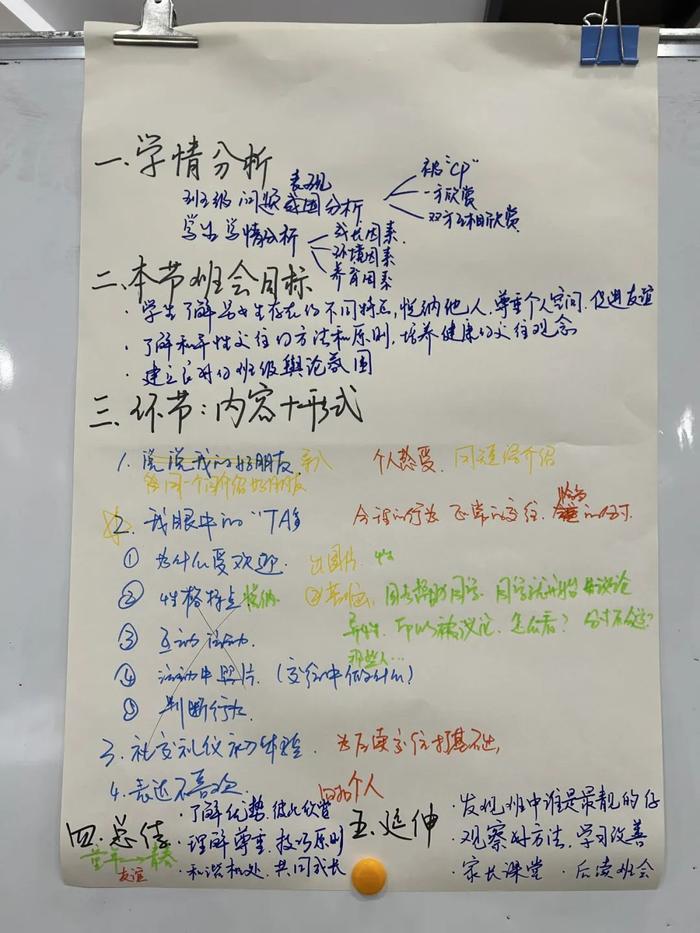 一.学情分析
班级问题表现成因分析
被"CP"
一方欣赏
双方互相欣赏
学生学情分析
成长因素
环境因素
养育因素
二.本节班会目标
·学生了解男女生存在的不同特点,悦纳他人,尊重个人空间,促进友谊
·了解和异性交往的方法和原则,培养健康的交往观念
·建立良好的班级舆论氛围
三.环节:内容+形式
1.说说我的好朋友 导入 个人感受 同组间介绍
用一个词介绍好朋友
2.我眼中的"TA" 合理的行为 正常的交往
①为什么受欢迎
②性格特点 悦纳
③互动活动
异性 怎么看?
④活动中照片.(交往中做什么?)
那些人...
⑤判断行为
3.社交礼仪初体验. 为后续交往打基础
4.表达不喜欢. 四个人
四.总结
童年→青春
友谊
·了解优势,彼此欣赏
·理解尊重,技巧原则
·和谐相处,共同成长
五.延伸
·发现班中谁是最靓的仔
·观察好方法,学习改善
·家长课堂 ·后续班会